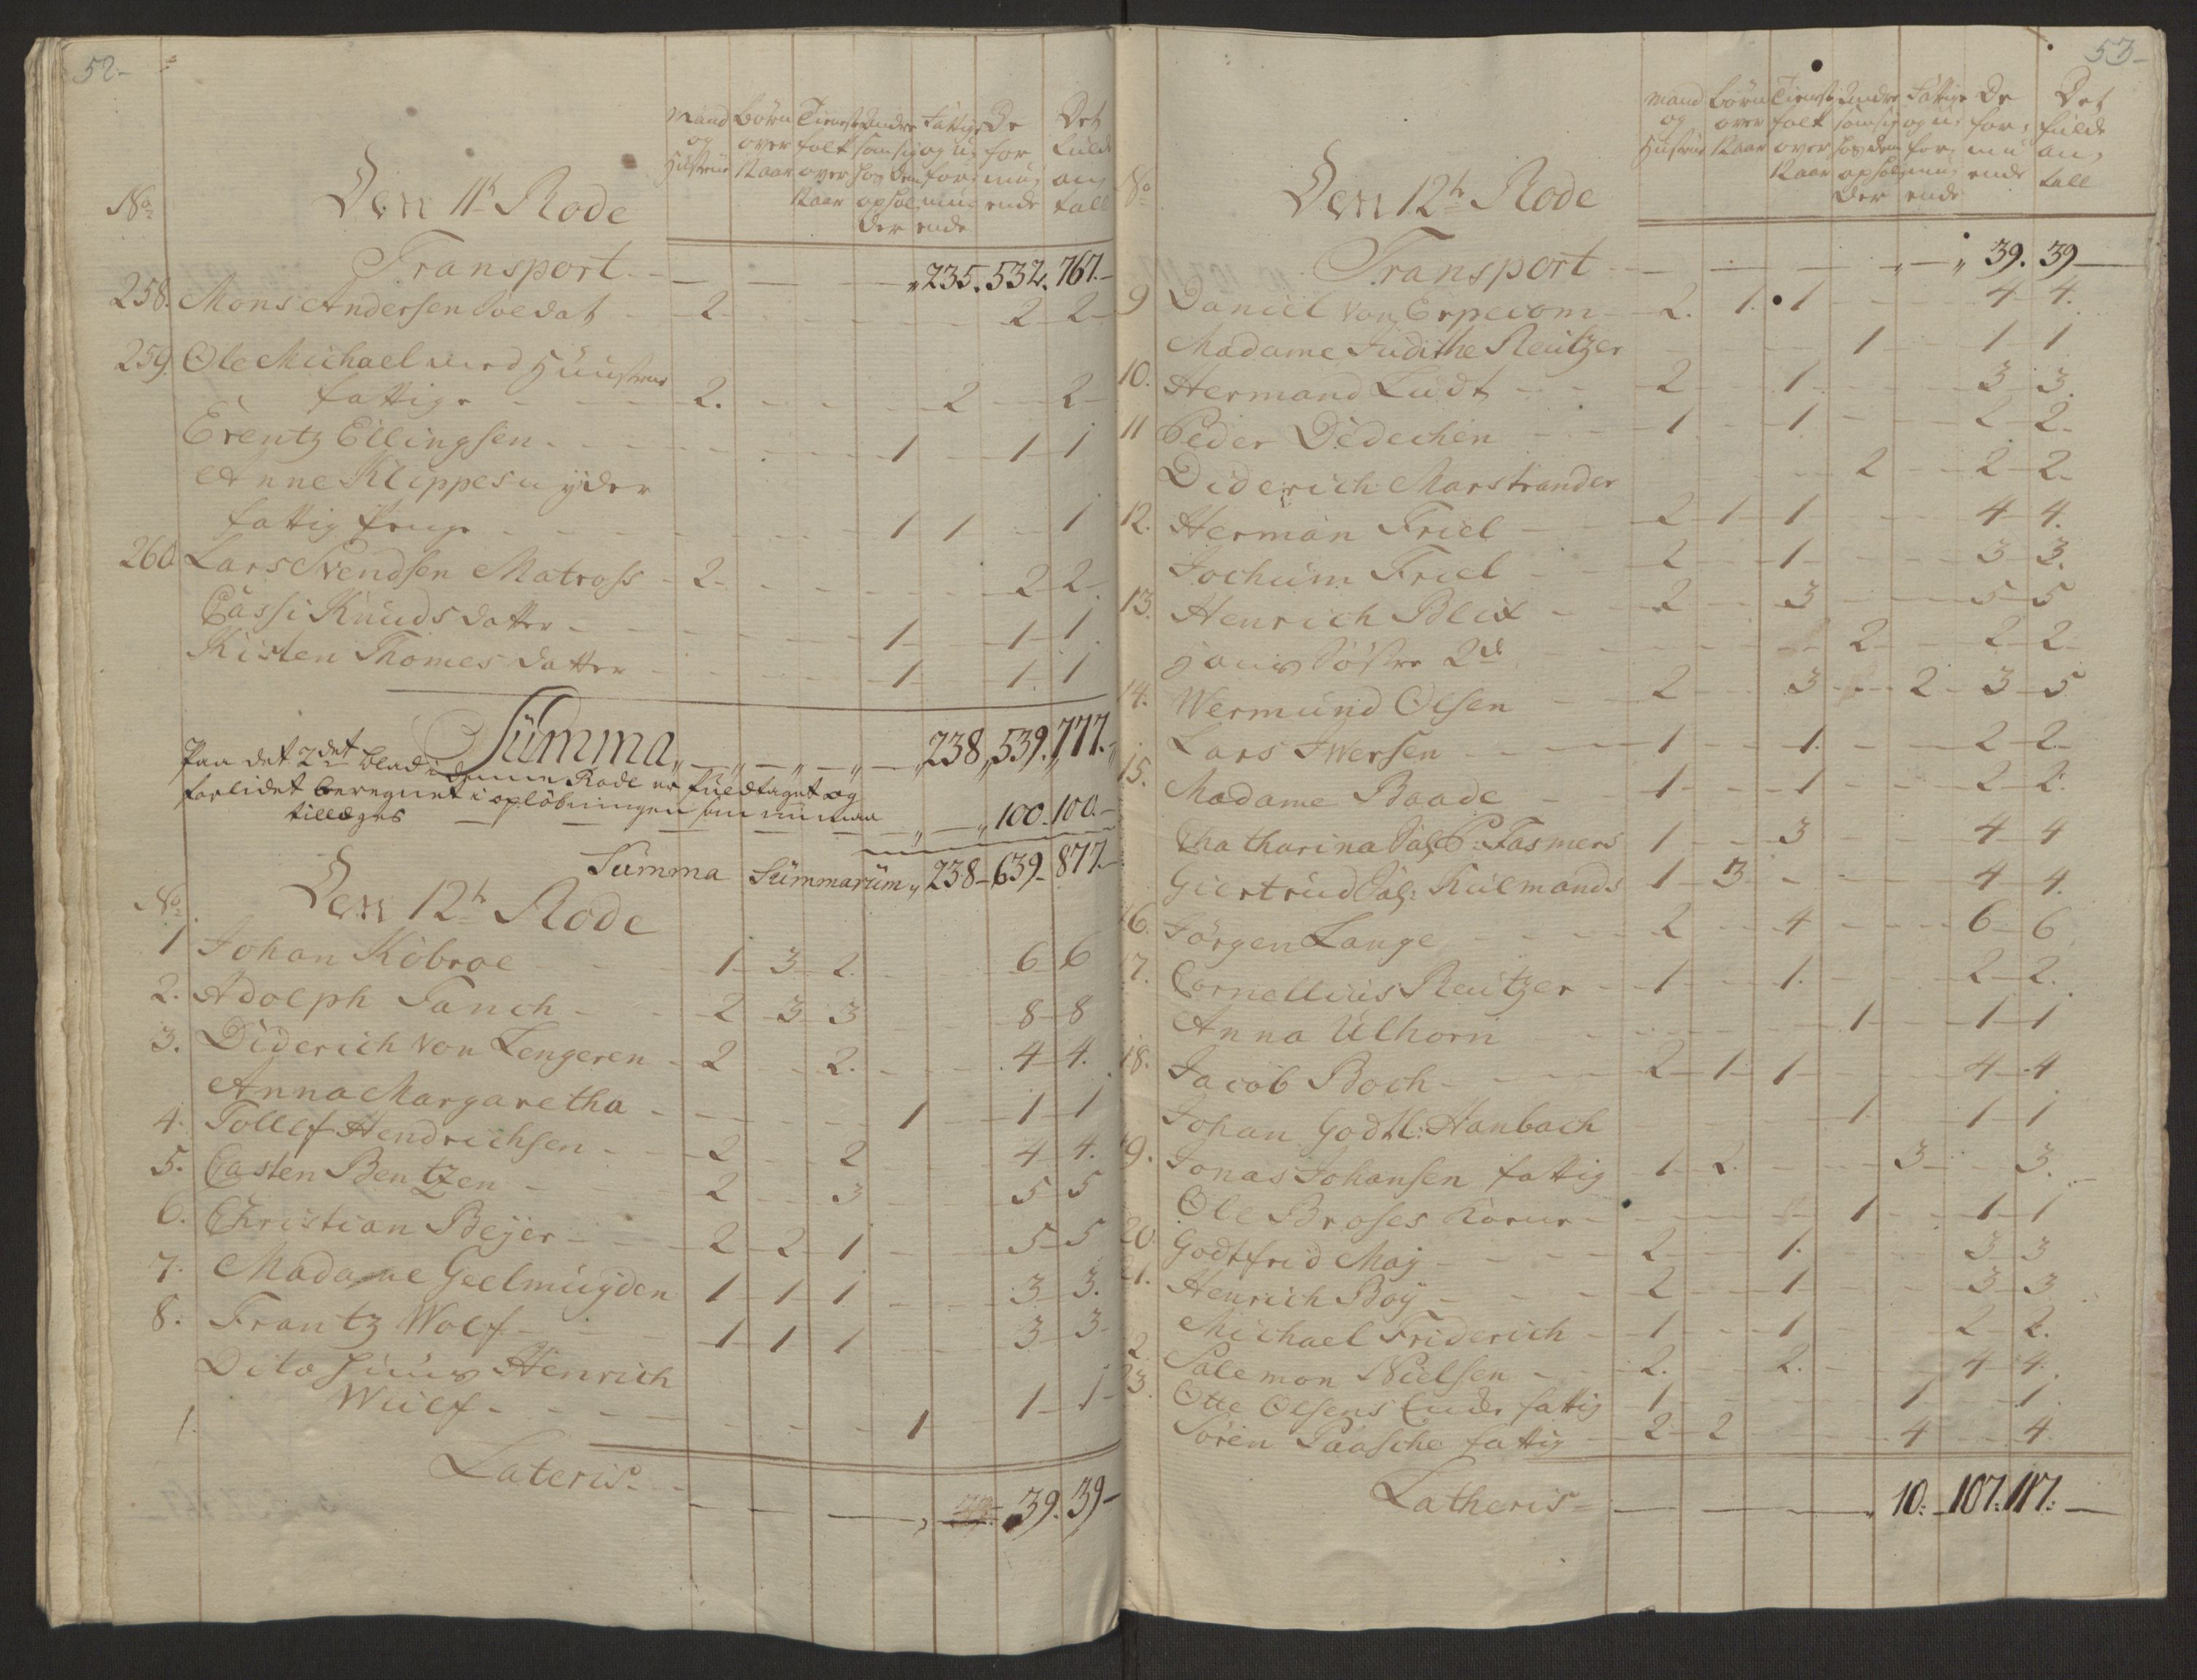 52-
Mand og Hustrue
Børn over 12 aar
Tieneste folk over 12 aar
Andre som sig hos dem opholder
Fattige og u formuende
De formuende
Det fulde antall
No
Den 11te Rode
Transport - - - - „ 235. 532. 767.-
258. Mons Andersen Soldat - 2 - - - - - 2 2
259. Ole Michael med Huustrue
fattige - - - 2. - - - 2 - 2
Erentz Ellingsen - - - - 1 - 1 1
Anne Klippesnyder
fattig Enge - - - - 1 1 - 1
260 Lars Svendsen Matross - 2 - - - - 2 2
Cassi Knuds datter - - - - 1 - 1 1
Kisten Thomes datter - - - - 1 - 1 1
Summa „ - „ - „ - „ - „ 238 „ 539. 777.
Paa det 2det blad i denne Rode er
forlidet beregnet i opløbningen som
tillæges - - - - „ - „ 100. 100.-
Summa Summarum „ 238 - 639 - 877.-
No
Den 12te Rode
1 Johan Kobroe 1 3 2. - - 6 6
2. Adolph Fanch - 2 3 3 - - 8 8
3. Diderich Von Lengeren - 2 - 2. - - 4 4.
Anna Margaretha - - - - 1 - 1 1
4. Tollef Hendrichsen - - 2 - 2 - - 4 4.
5. Casten Bentzen - 2 - 3 - - 5 5
6. Christian Beÿer - - 2 2 1 - - 5 5
7. Madame Geelmuÿden 1 1 1 - - 3 3.
8. Frantz Wolf - - 1 1 1 - - 3 3
Dito Henrich
Wulf - - - - - - 1 - 1 1
1.
Lateris - - - - - „ 39. 39-
53-
Mand og Hustrue
Børn over 12 aar
Tieneste folk over 12 aar
Andre som sig hos dem opholder
Fattige og u formuende
De formuende
Det fulde antall
No
Den 12te Rode
Transport - - - - „ - „ 39. 39
9 Daniel Von Erpecom - 2. 1. 1 - - 4 4.
Madame Judithe Reutzer - - - 1 - 1 1
10. Hermand Ludt - - 2 - 1 - - 3 3.
11 Peder Didechen - 1 - 1 - - 2 2
Diderich Marstrander - - 2 - 2 2
12. Herman Friel - 2 1 1 - - 4 4.
Jochum Friel - 2 - 1 - - 3 3.
13. Henrich Blix - 2 - 3 - - 5 5
hans Søstre 2de - - - 2 - 2 2
14. Wermund Olsen - 2 - 3 - 2 3 5
Lars Iwersen - - 1 - 1. - - 2 2
15. Madame Baade - 1 - 1 - - 2 2.
Chatharina Sal: P: Fasmers 1 - 3 - - 4 4
Giertrud Sal: Kulmands 1 3 - - - 4 4.
16. Jørgen Lange - 2 - 4 - - 6 6
17. Cornellius Reutzer - 1 - 1. - - 2 2.
Anna Ulhorn - - - 1 - 1 1
18. Jacob Boch - - 2 1 1 - - 4 4
Johan Godtl: Hanbach - - 1. - 1 1
19. Jonas Johansen fattig 1 2. - - 3 - 3.
Ole Broses - - - 1 - 1 1
20. Godtfrid Maÿ - - 2 - 1. - - 3 3
21. Henrich Boÿ - - 2 - 1 - - 3 3
Michael Friderich - 1 - 1 - - 2 2.
22. Salemon Nielsen - 2. - 2. - - 4 4.
23. Otte Olsens Encke fattig 1 - - - 1 - 1
Sören Paasche fattig - 2 2 - - 4 - 4.
Latheris - - - - - 10: - 107: 117: -